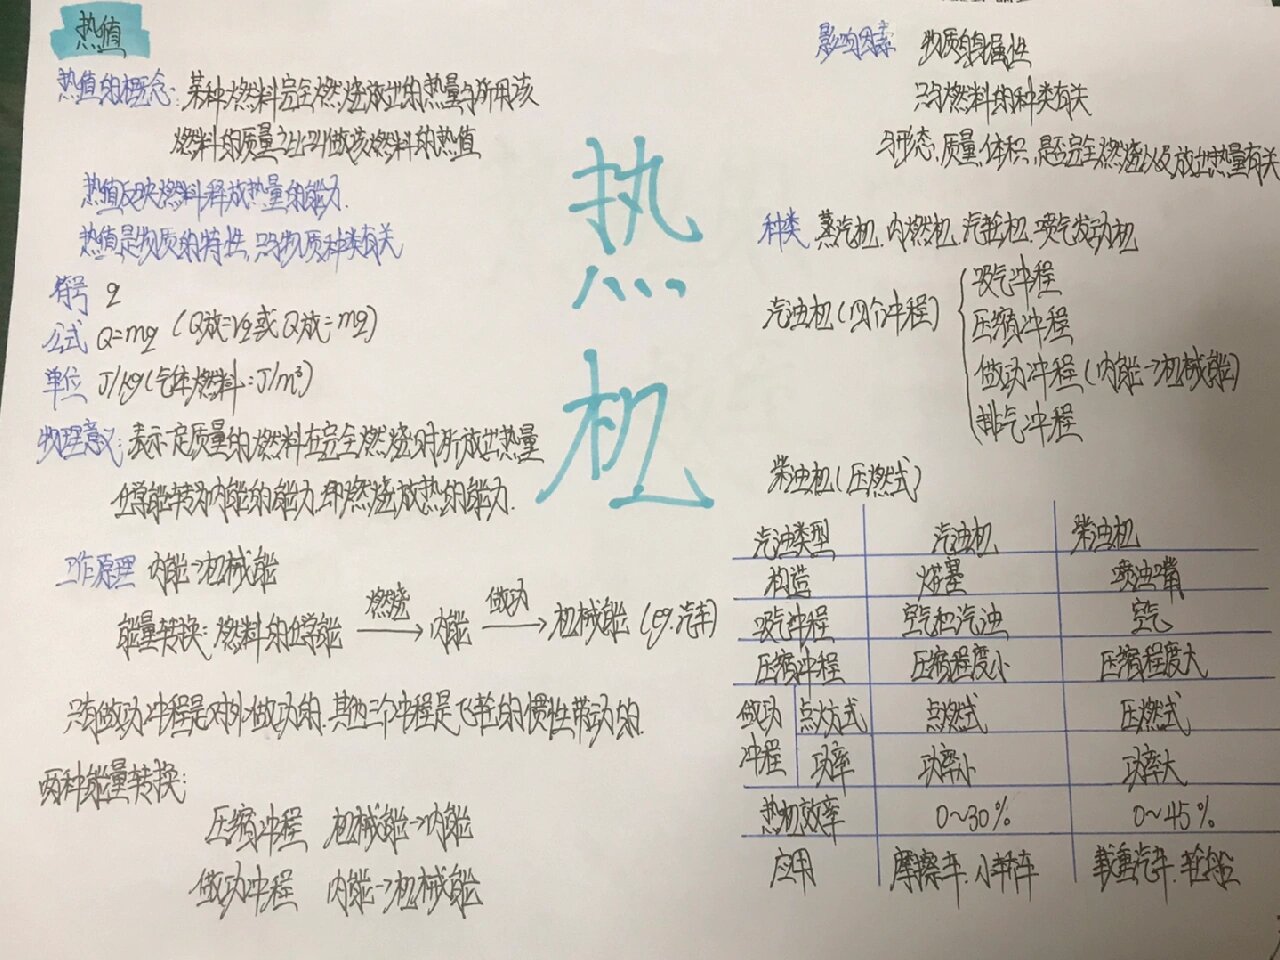 热值
热值的概念：某种燃料完全燃烧放出的热量与所用该
燃料的质量之比叫做该燃料的热值
热值反映燃料释放热量的能力.
热值是物质的特性,只与物质种类有关
符号 q
公式 Q=mq (Q放=Vq或Q放=mq)
单位 J/kg(气体燃料:J/m³)
物理意义:表示一定质量的燃料在完全燃烧时所放出热量
化学能转为内能的能力,即燃烧放热的能力.
工作原理 内能→机械能
能量转换:燃料的化学能 燃烧→ 内能 做功→ 机械能 (eg.汽车)
只有做功冲程是对外做功的,其他三个冲程是飞轮的惯性带动的.
两种能量转换:
压缩冲程 机械能→内能
做功冲程 内能→机械能
热机
影响因素 物质自身属性
只与燃料的种类有关
与形态、质量、体积、是否完全燃烧以及放出热量有关
种类 蒸汽机、内燃机、汽轮机、喷气发动机
汽油机(四个冲程)
吸气冲程
压缩冲程
做功冲程(内能→机械能)
排气冲程
柴油机(压燃式)
汽油类型 汽油机 柴油机
构造 火花塞 喷油嘴
吸气冲程 空气和汽油 空气
压缩冲程 压缩程度小 压缩程度大
做功冲程 点火方式 点燃式 压燃式
功率 功率小 功率大
热机效率 0~30% 0~45%
应用 摩擦车、小轿车 载重汽车、轮船